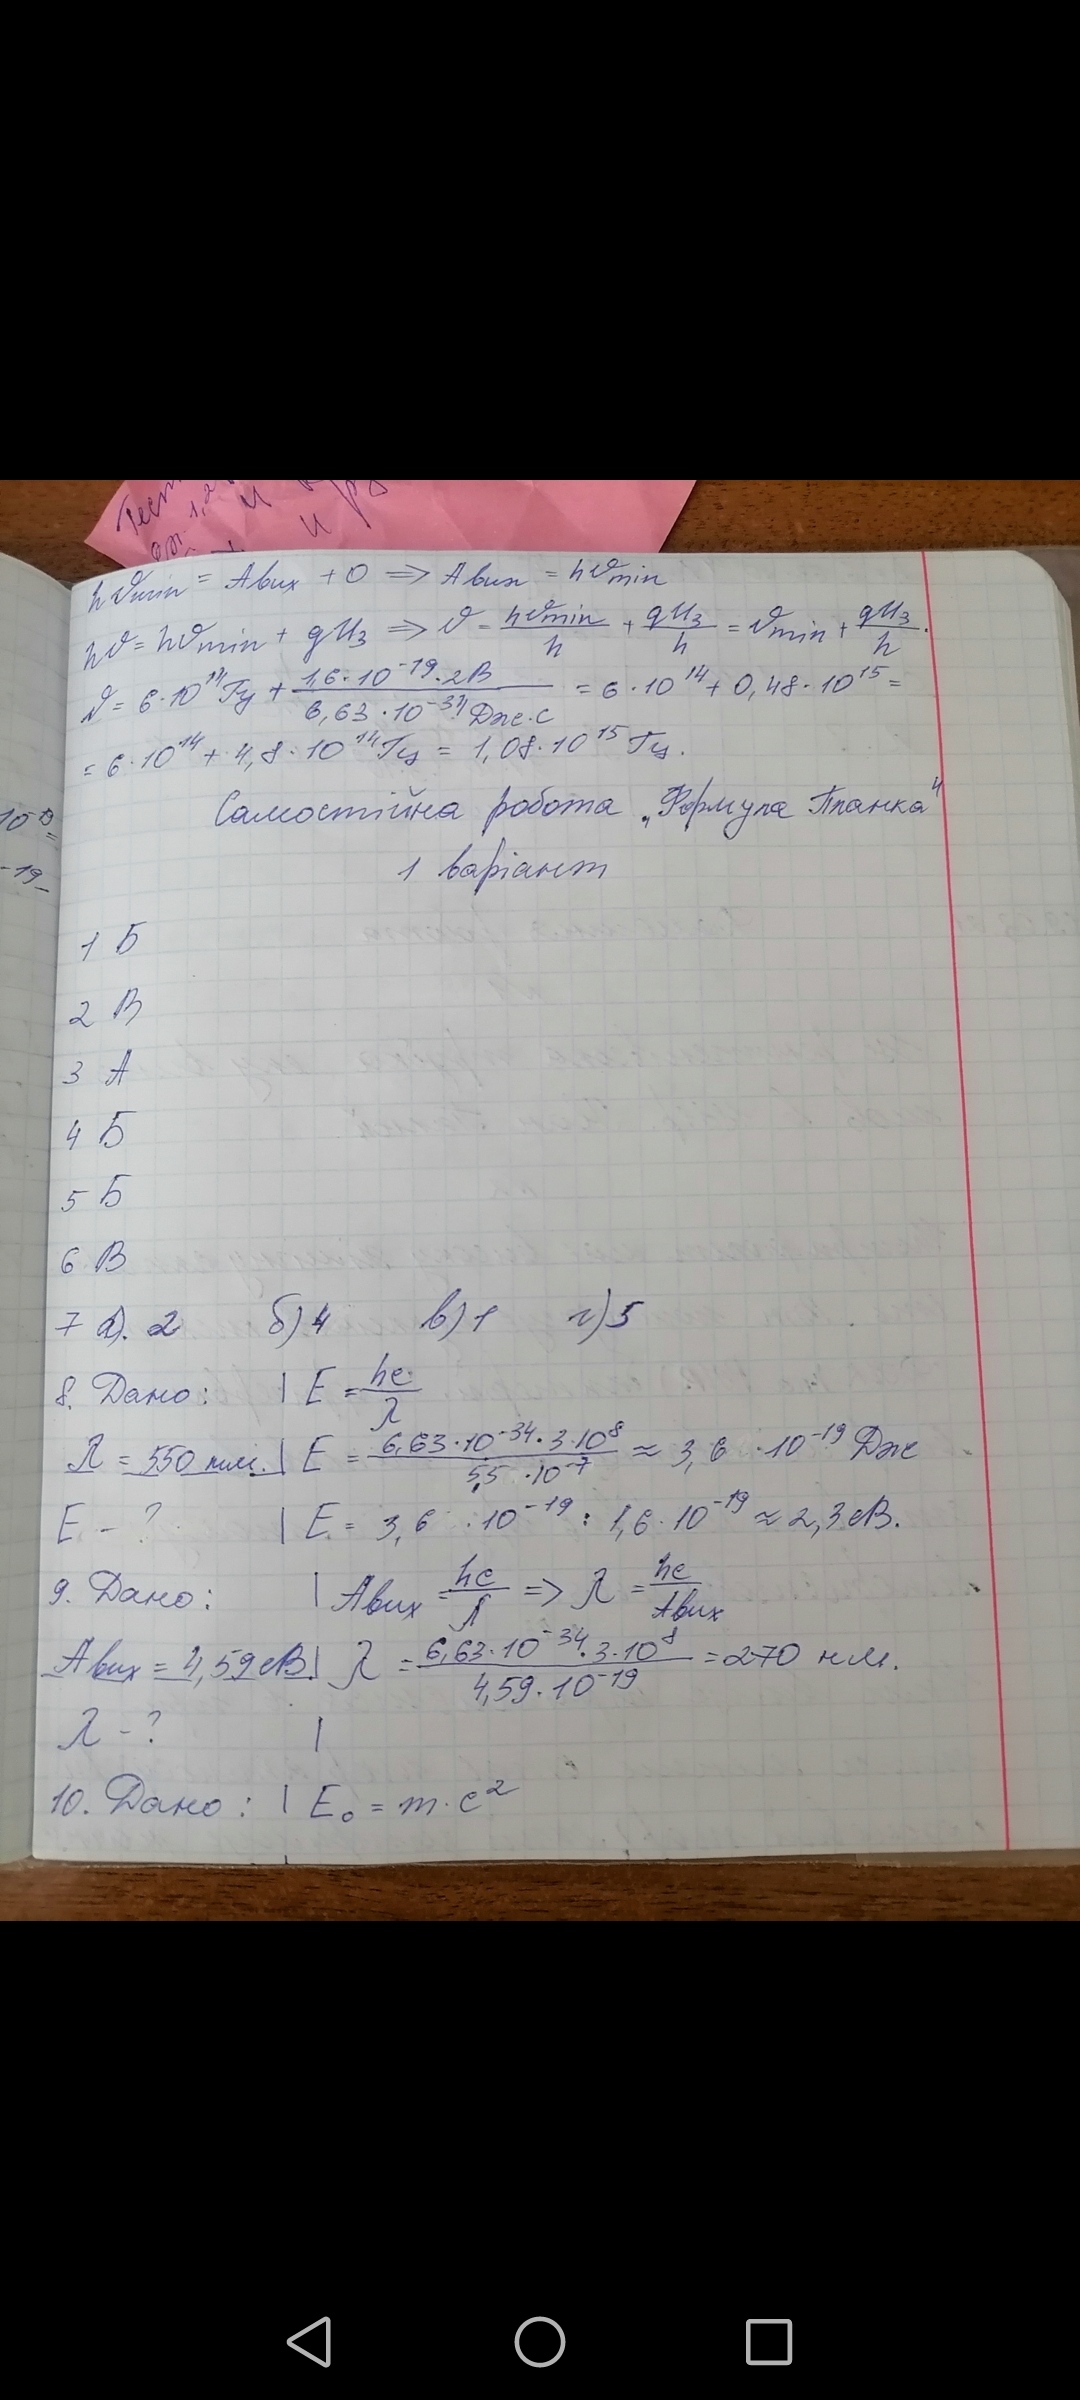 Тест
1,2 и
и
hϑmin = Aвих + 0 => Aвих = hϑmin
hϑ = hϑmin + qU₃ => ϑ = hϑmin/h + qU₃/h = ϑmin + qU₃/h.
ϑ = 6·10¹⁴ Гц + 1,6·10⁻¹⁹·2В / 6,63·10⁻³⁴ Дж·с = 6·10¹⁴ + 0,48·10¹⁵ =
= 6·10¹⁴ + 4,8·10¹⁴ Гц = 1,08·10¹⁵ Гц.
Самостійна робота „Формула Планка"
1 варіант
1 Б
2 В
3 А
4 Б
5 Б
6 В
7 а). 2 б) 4 в) 1 г) 5
8. Дано: | E = hc/λ
λ = 550 нм. | E = 6,63·10⁻³⁴·3·10⁸ / 5,5·10⁻⁷ ≈ 3,6·10⁻¹⁹ Дж
E - ? | E = 3,6·10⁻¹⁹ : 1,6·10⁻¹⁹ ≈ 2,3 еВ.
9. Дано: | Aвих = hc/λ => λ = hc/Aвих
Aвих = 4,59 еВ | λ = 6,63·10⁻³⁴·3·10⁸ / 4,59·10⁻¹⁹ = 270 нм.
λ - ? |
10. Дано: | E₀ = m·c²